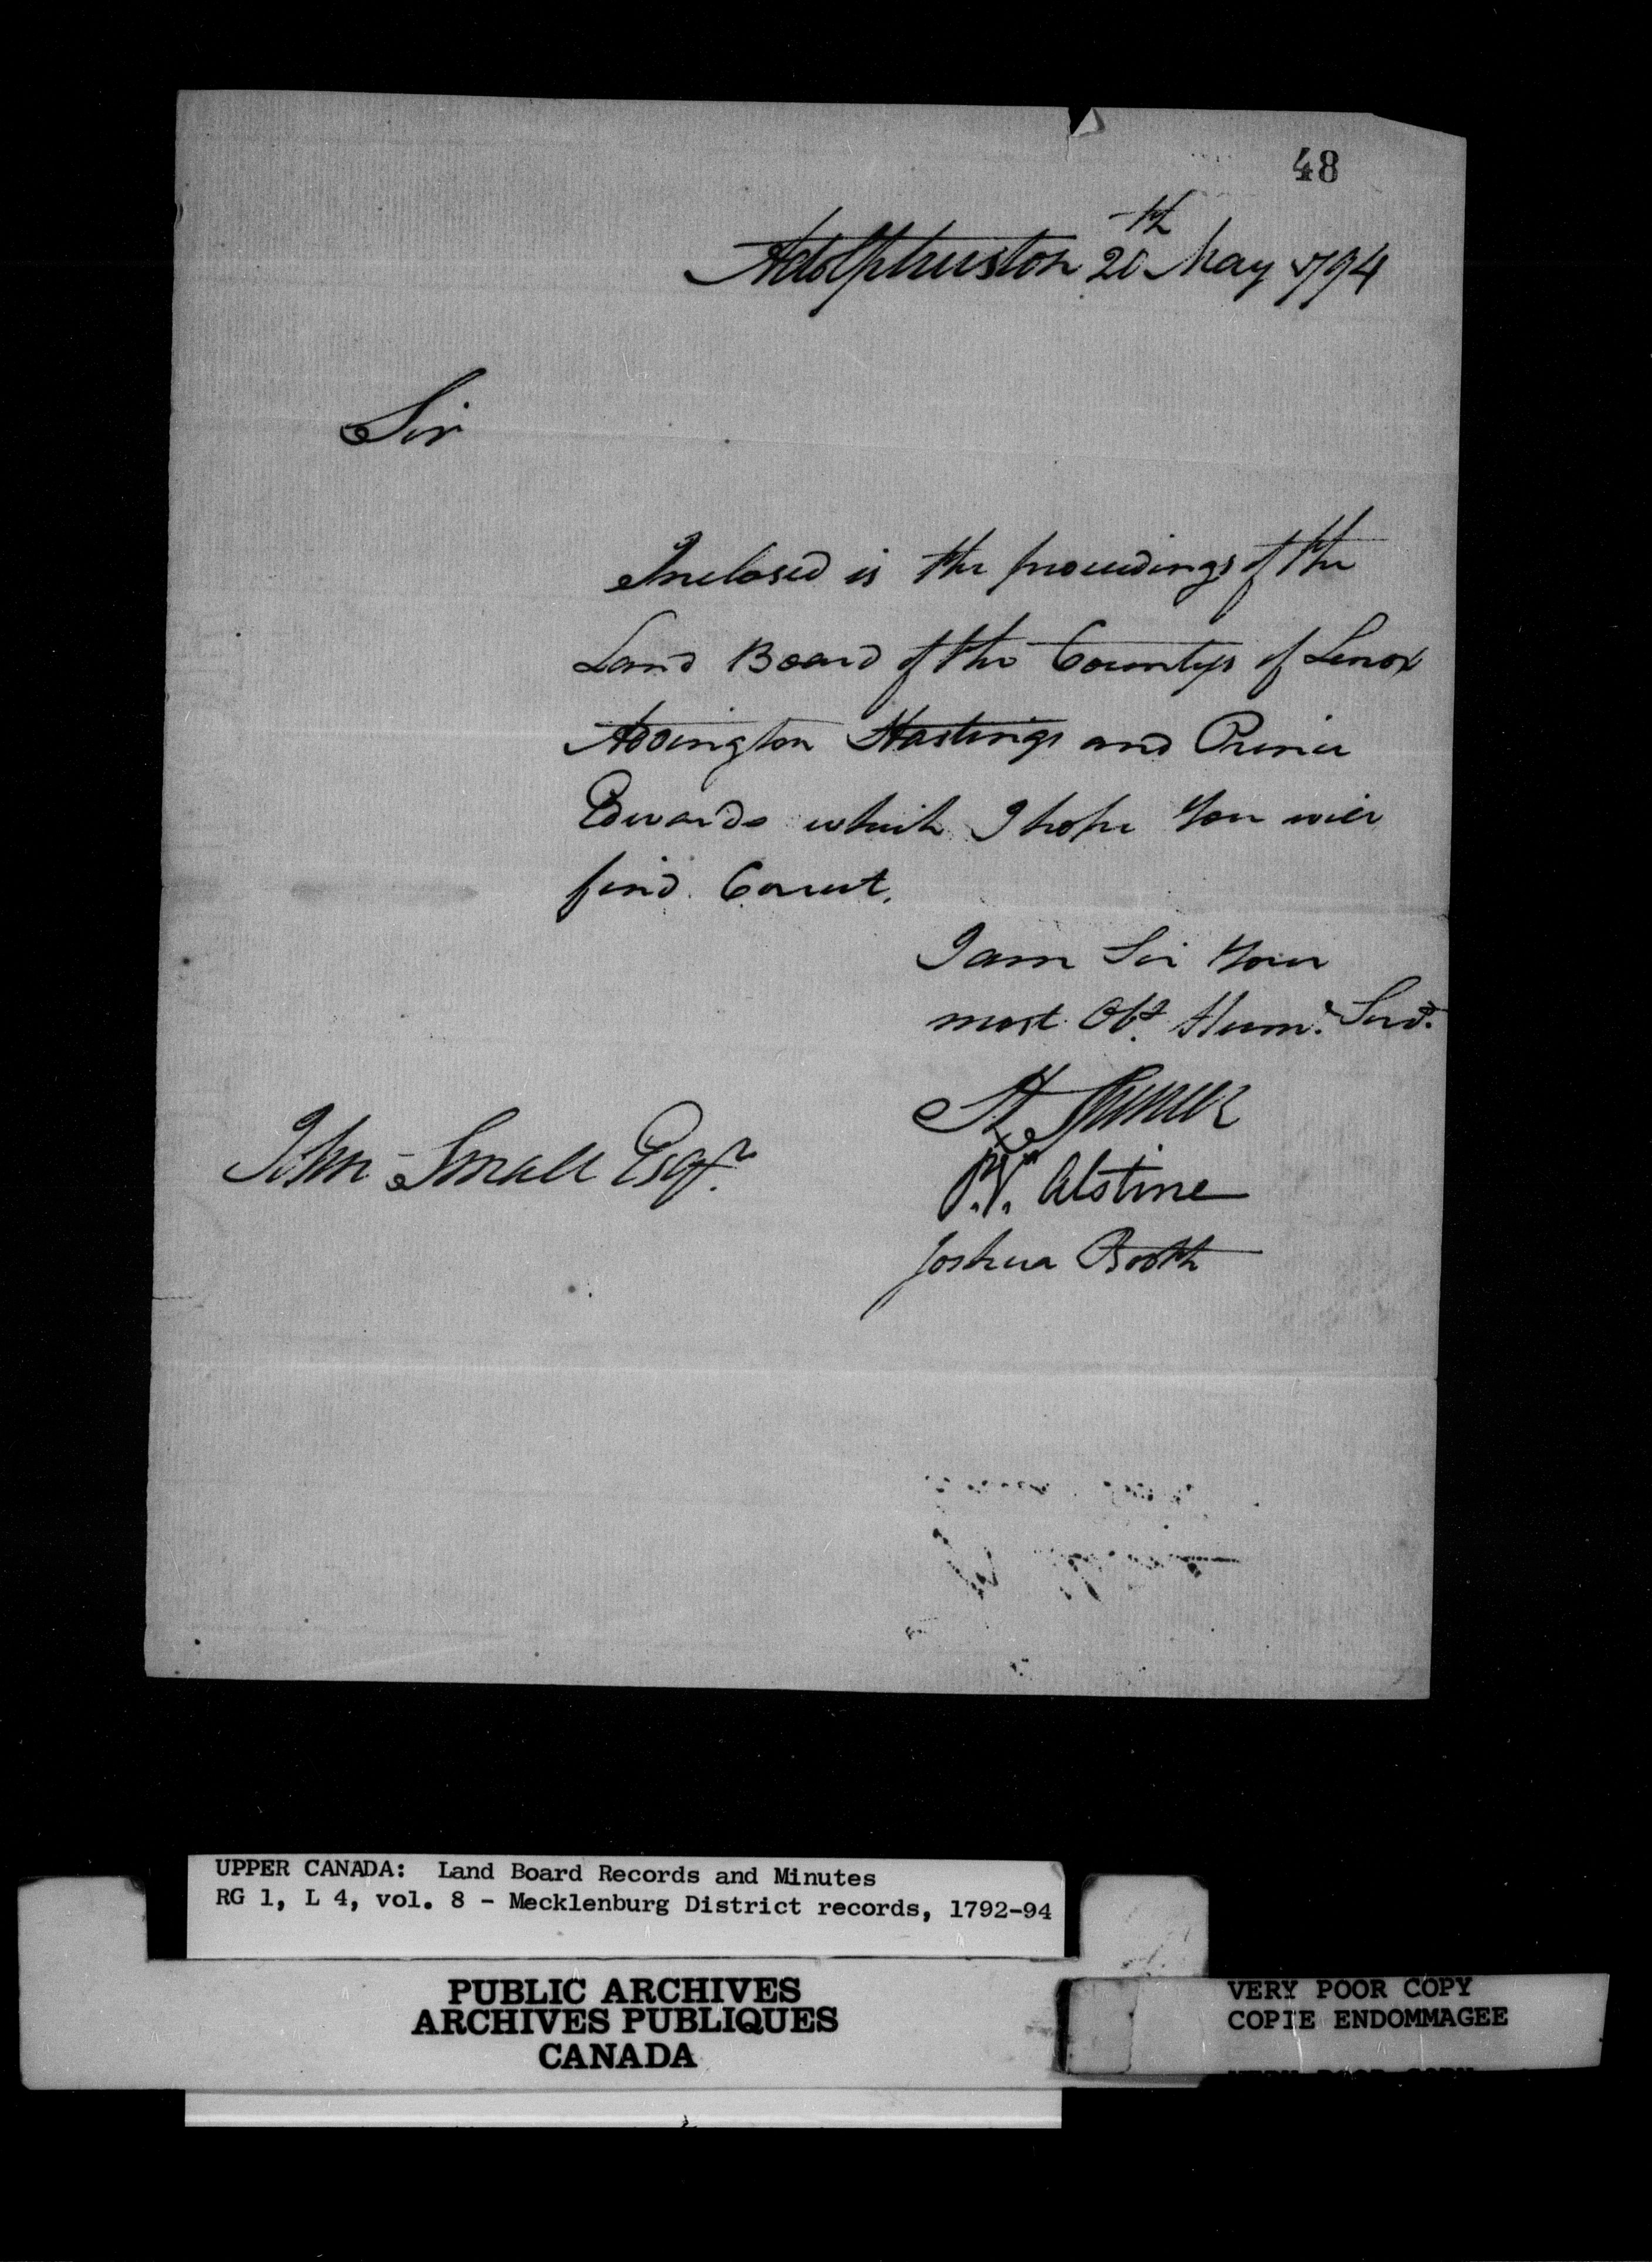 48
Adolphuston 20th May 1794
Sir
Inclosed is the proceedings of the
Land Board of the Countys of Lenox
Addington Hastings and Prince
Edwards which I hope You will
find Correct.
I am Sir Your
most Obt. Hume. Servt.
John Small Esqr.
P.V. Alstine
Joshua Booth
UPPER CANADA: Land Board Records and Minutes
RG 1, L 4, vol. 8 - Mecklenburg District records, 1792-94
PUBLIC ARCHIVES
ARCHIVES PUBLIQUES
CANADA
VERY POOR COPY
COPIE ENDOMMAGEE